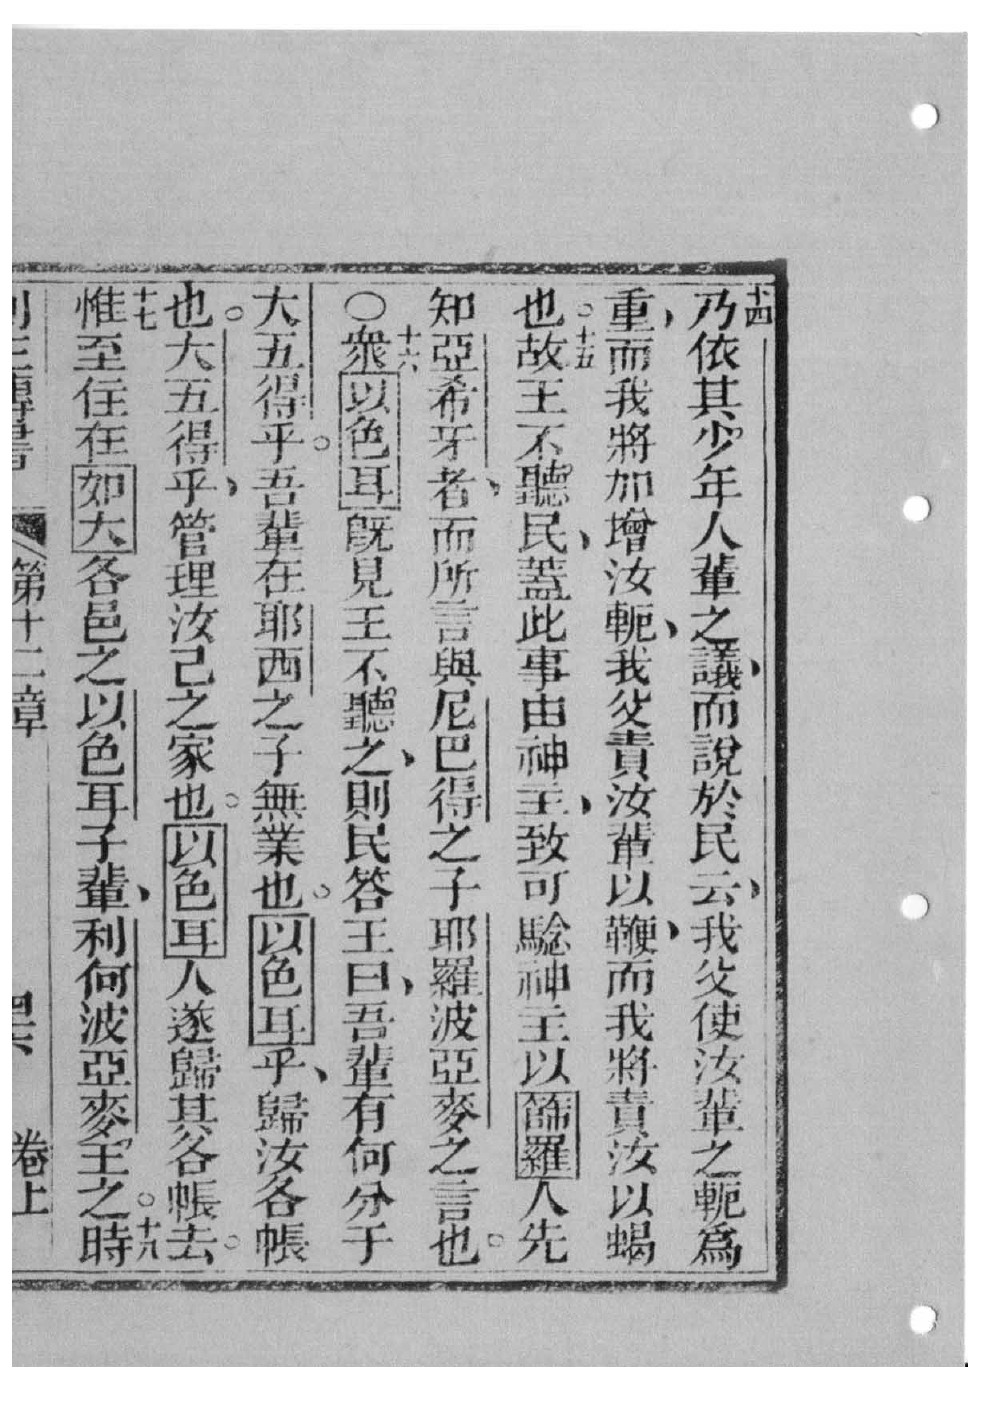 十四乃依其少年人輩之議、而說於民云、我父使汝輩之軛爲
重、而我將加增汝軛、我父責汝輩以鞭、而我將責汝以蝎
也。十五故王不聽民、蓋此事由神主、致可驗神主以篩羅人先
知亞希牙者、而所言與尼巴得之子耶羅波亞麥之言也。
○十六衆以色耳旣見王不聽之、則民答王曰、吾輩有何分于
大五得乎。吾輩在耶西之子無業也。以色耳乎、歸汝各帳
也。大五得乎、管理汝己之家也。以色耳人遂歸其各帳去。
十七惟至住在如大各邑之以色耳子輩、利何波亞麥王之時。十九
列王傳書 第十二章 卷上